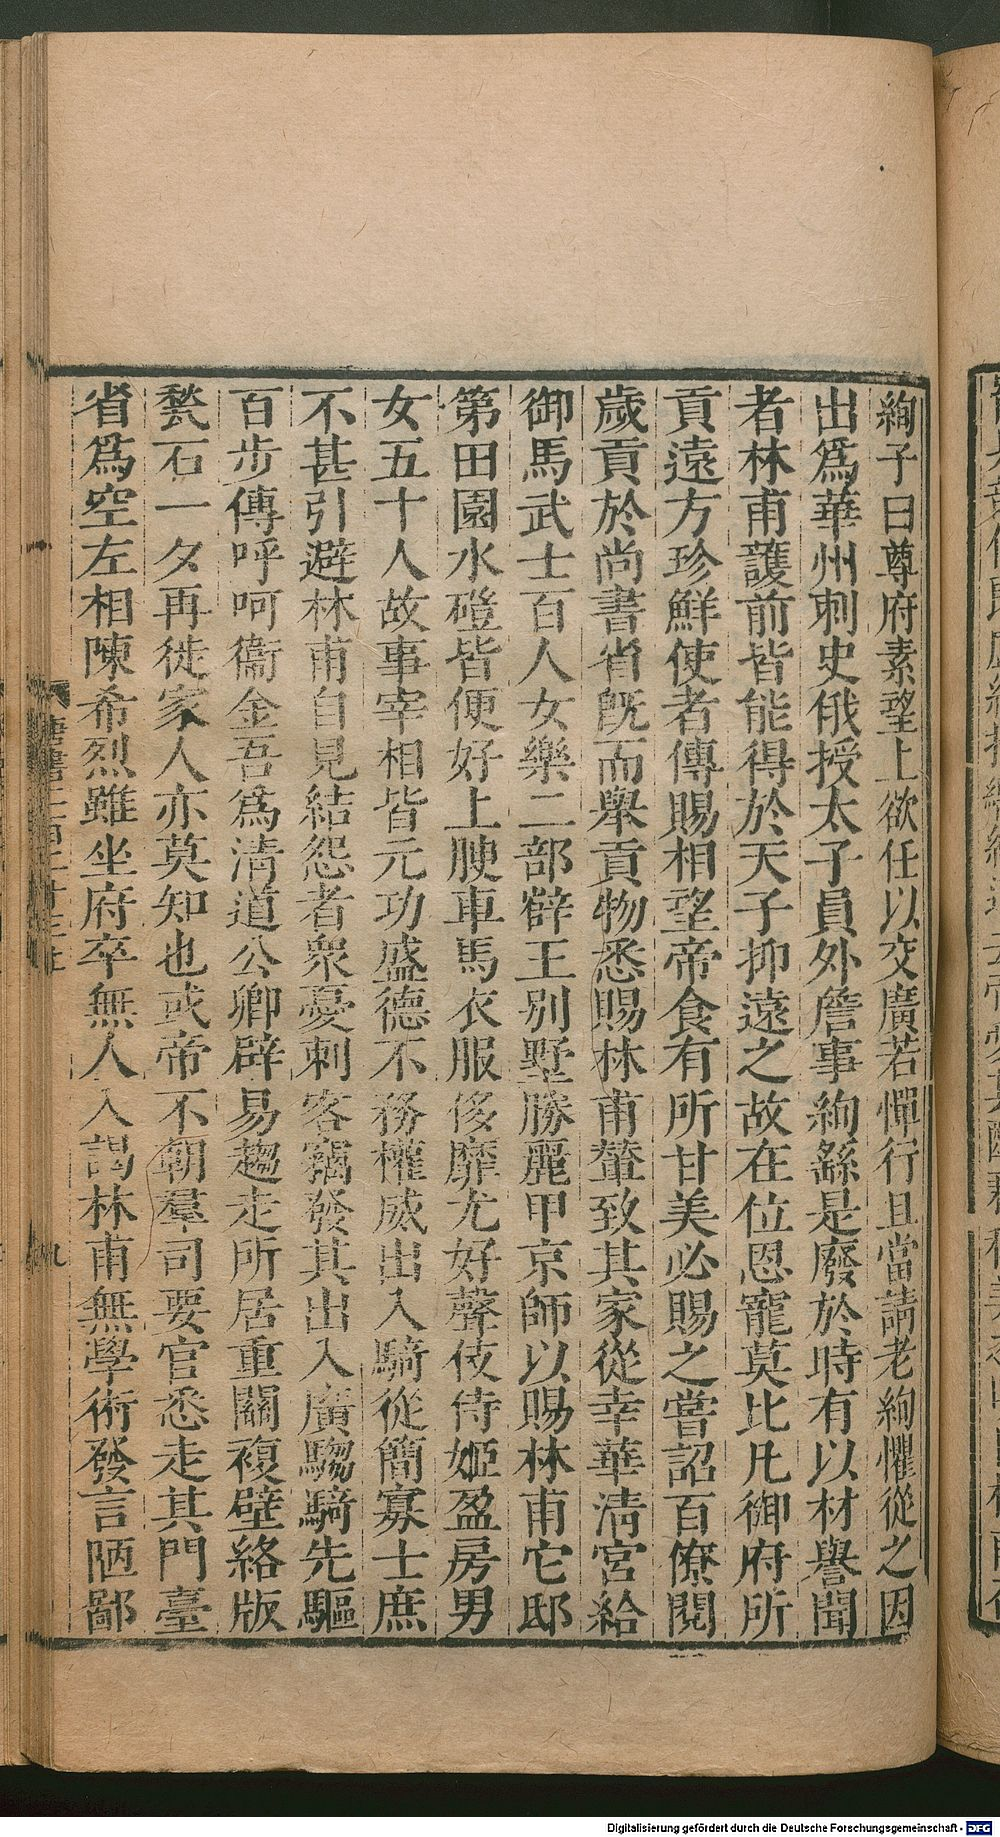 絢子曰尊府素望上欲任以交廣若憚行且當請老絢懼從之因
出爲華州刺史俄授太子員外詹事絢繇是廢於時有以材譽聞
者林甫護前皆能得於天子抑遠之故在位恩寵莫比凡御府所
貢遠方珍鮮使者傳賜相望帝食有所甘美必賜之嘗詔百僚閱
歲貢於尚書省旣而舉貢物悉賜林甫輦致其家從幸華淸宮給
御馬武士百人女樂二部薛王別墅勝麗甲京師以賜林甫它邸
第田園水磑皆便好上腴車馬衣服侈靡尤好聲伎侍姬盈房男
女五十人故事宰相皆元功盛德不務權威出入騎從簡寡士庶
不甚引避林甫自見結怨者衆憂刺客竊發其出入廣騶騎先驅
百步傳呼呵衞金吾爲淸道公卿辟易趨走所居重關複壁絡版
甃石一夕再徙家人亦莫知也或帝不朝羣司要官悉走其門臺
省爲空左相陳希烈雖坐府卒無人入謁林甫無學術發言陋鄙
唐書二百二十三上
九
Digitalisierung gefördert durch die Deutsche Forschungsgemeinschaft - DFG